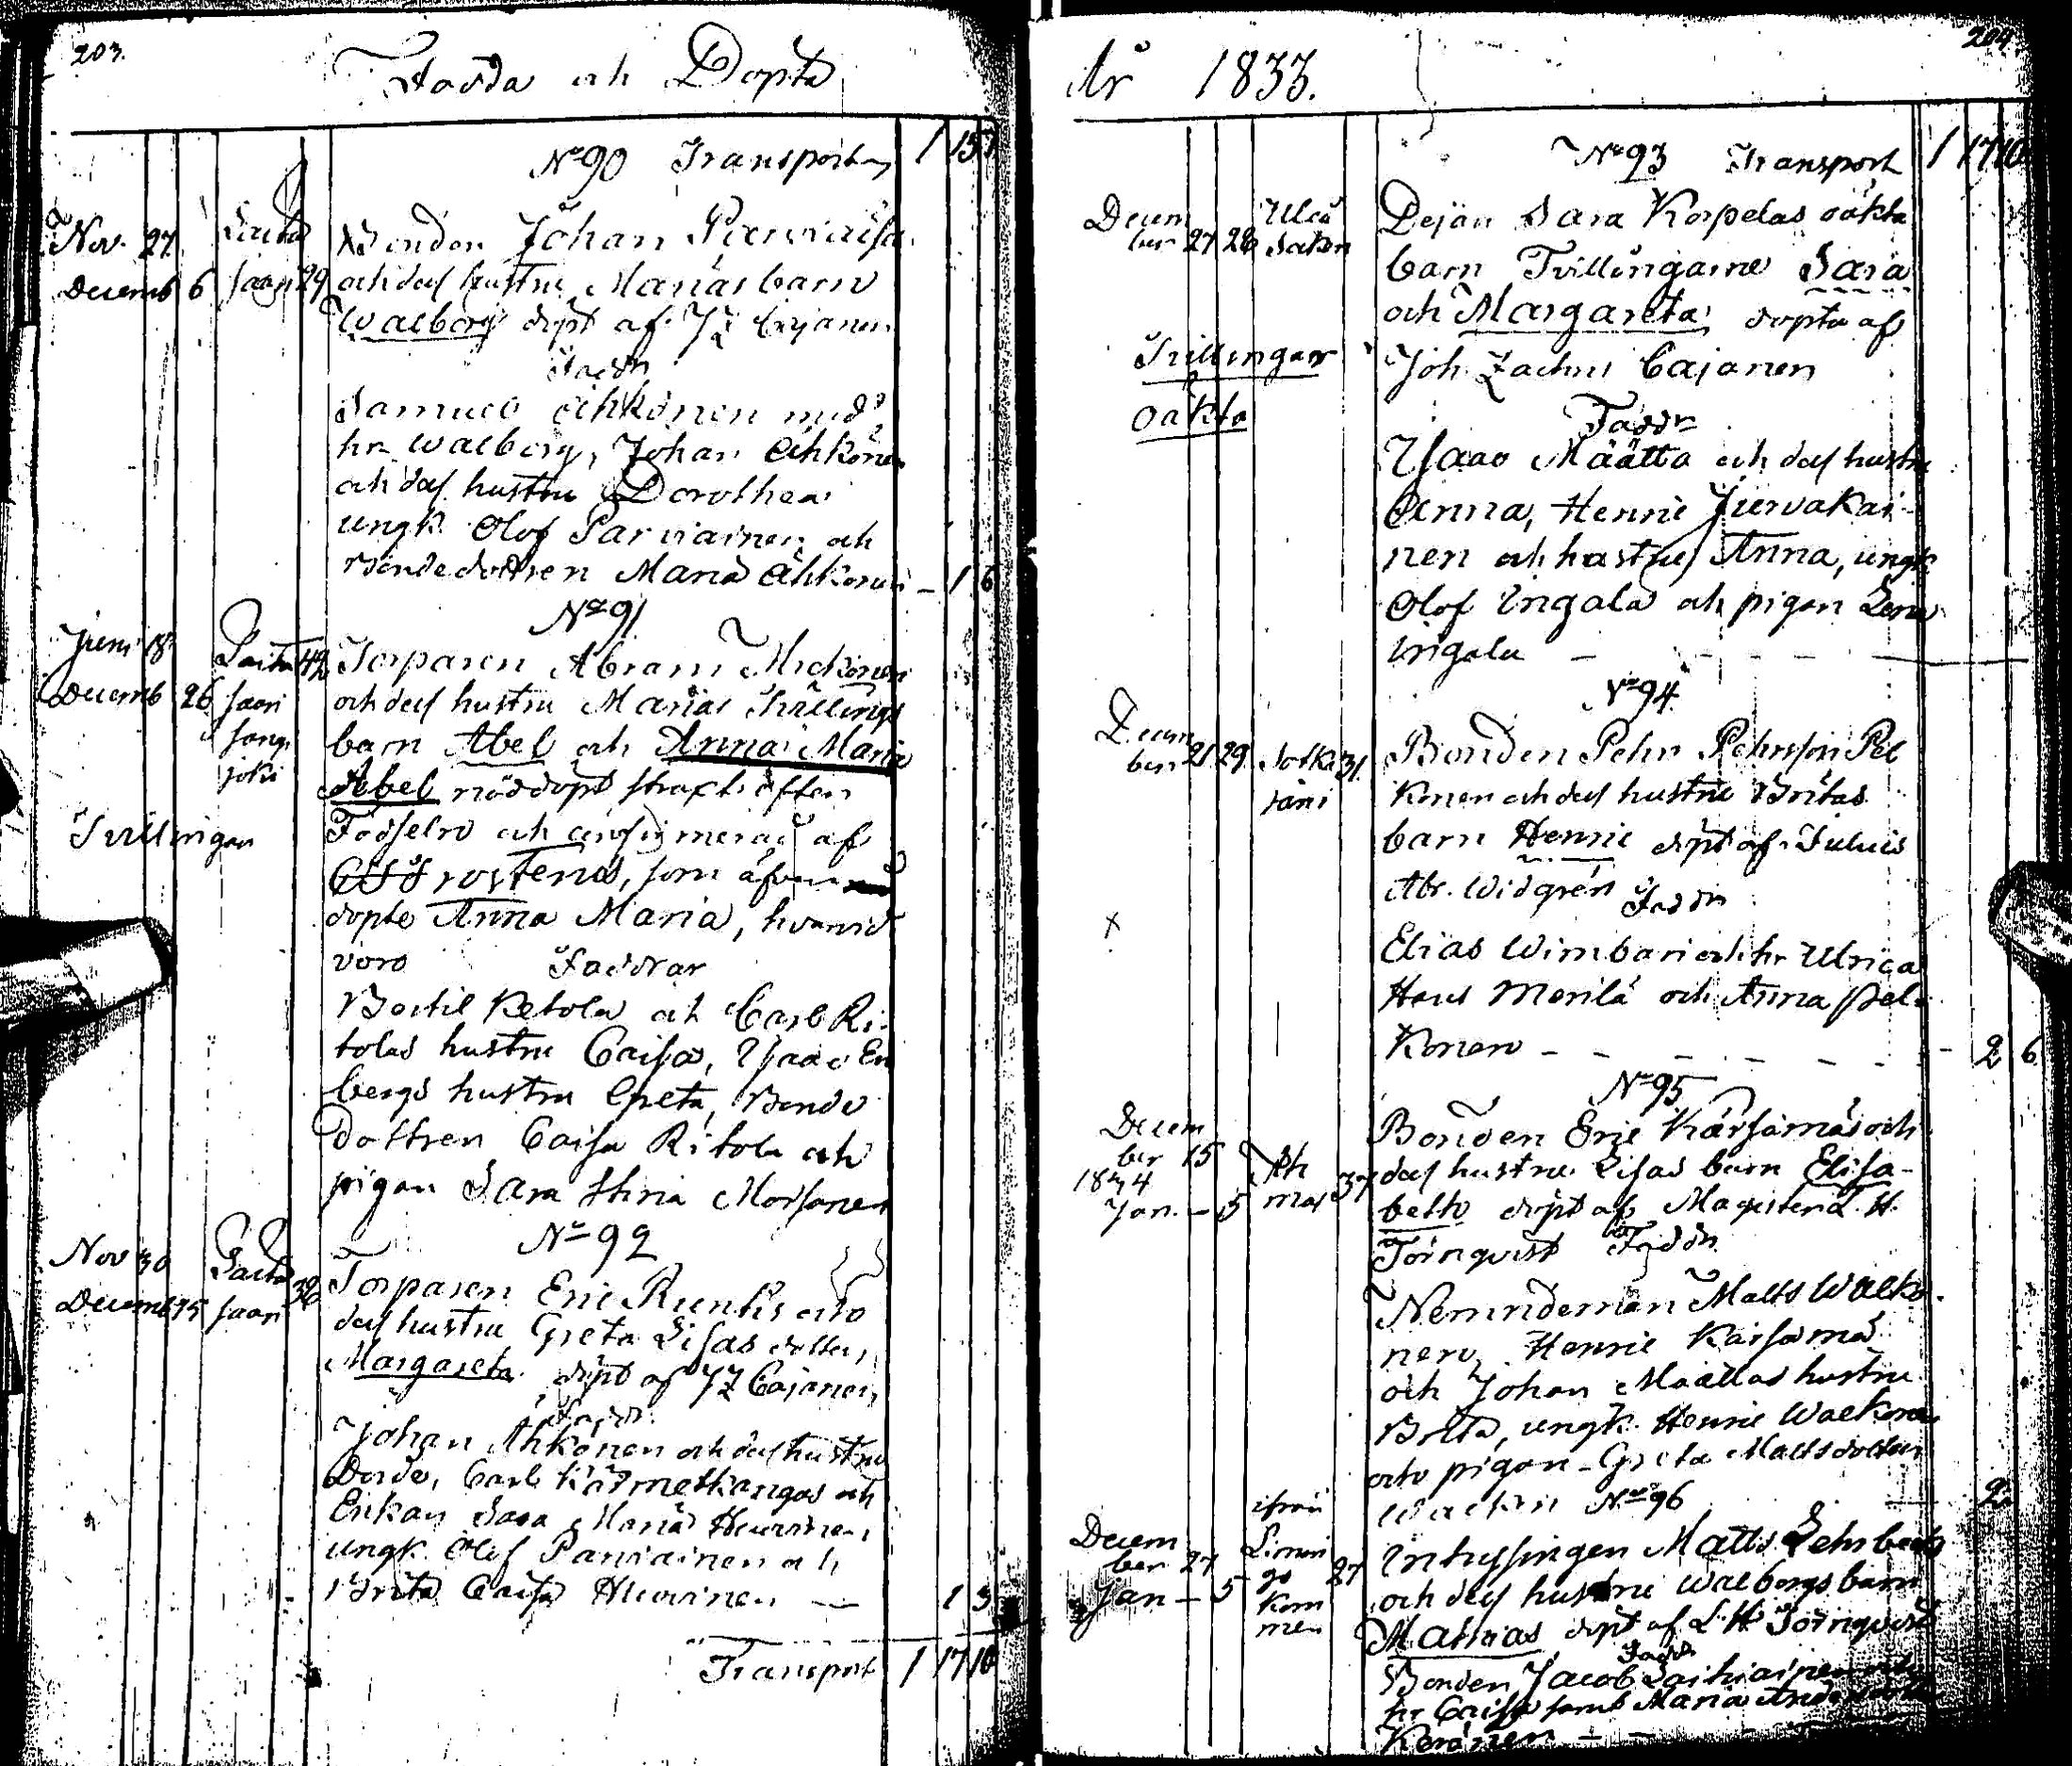 203.
Födda och Döpta
No 90 Transport 1 15
Nov. 27
Decemb 6 29
Bonden Johan Parviaisen
och dess hustru Marias barn
Walborg döpt af JZ Cajanen
Faddr
Samuel Ahkonen med
hr Walborg, Johan Ahkonen
och dess hustru Dorothea
ungk. Olof Parviainen och
Bondedottren Maria Ahkonen – 1 6
No 91
Juni 18
Decemb 26 42
Torparen Abram Mickonen
och dess hustru Marias Tvillings
barn Abel och Anna Maria
Abel nöddöpt straxt efter
Födseln och af
som äfven
döpte Anna Maria, hvarvid
voro Faddrar
Tvillingar
Bertil Ketola och Carl Ri-
tolas hustru Caisa, Isaac En
bergs hustru Greta, Bonde
dottren Caisa Ritola och
pigan Sara Stina
No 92
Nov 30
Decemb 15 saari
Torparen Eric och
dess hustru Greta Lisas dotter
Margareta döpt af JZ Cajanen
Faddr.
Johan Ahkonen och dess hustru
Dorde, Carl och
Enkan Sara Maria Heurinen
ungk. Olof Parviainen och
Brita Caisa Heurinen — 1 3
Transport 1 17 10
204
År 1833.
No 93 Transport 1 17 10
Decem
ber 27 28
Dejan Sara Korpelas oäkta
barn Tvillingarne Sara
och Margareta döpta af
Joh. Zachris Cajanen
Tvillingar
oäkta
Faddr
Isaac Määtta och dess hustru
Anna, Henric Jiervakai-
nen och hustru Anna, ungk.
Olof Ingala och pigan Lena
Ingala – – –
No 94
Decem
ber 21 29 31
Bonden Pehr Pehrsson Pel
konen och dess hustru Britas
barn Henric döpt af
Abr. Widgrén Faddr
x
Elias Wimbari och hr Ulrica
Hans Merilä och Anna Pel-
konen – – – 2 6
No 95
Decem
ber 15
1834
Jan. – 5 37
Bonden Eric Kärsämäs och
dess hustru Lisas barn Elisa-
beth döpt af Magister L. H.
Törnqvist Faddr
Nemndeman Matts Walko-
nen, Henric Kärsämä
och Johan Määttas hustru
Brita, ungk. Henric Walkonen
och pigan Greta Mattsdotter
No 96 2
ifrån
Decem
ber 27
Jan – 5
Limin
go 27
Kom
men
Inhysingen Matts
och dess hustru Walborgs barn
Mathias döpt af L H Törnqvist
Faddr
Bonden Jacob Laihiainen
hr Caisa samt Maria
Keränen – –